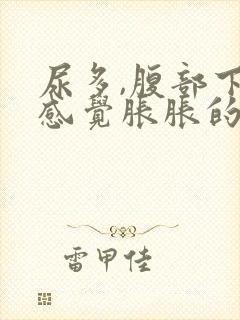 尿多,腹部下
感覺脹脹的
雷甲佳